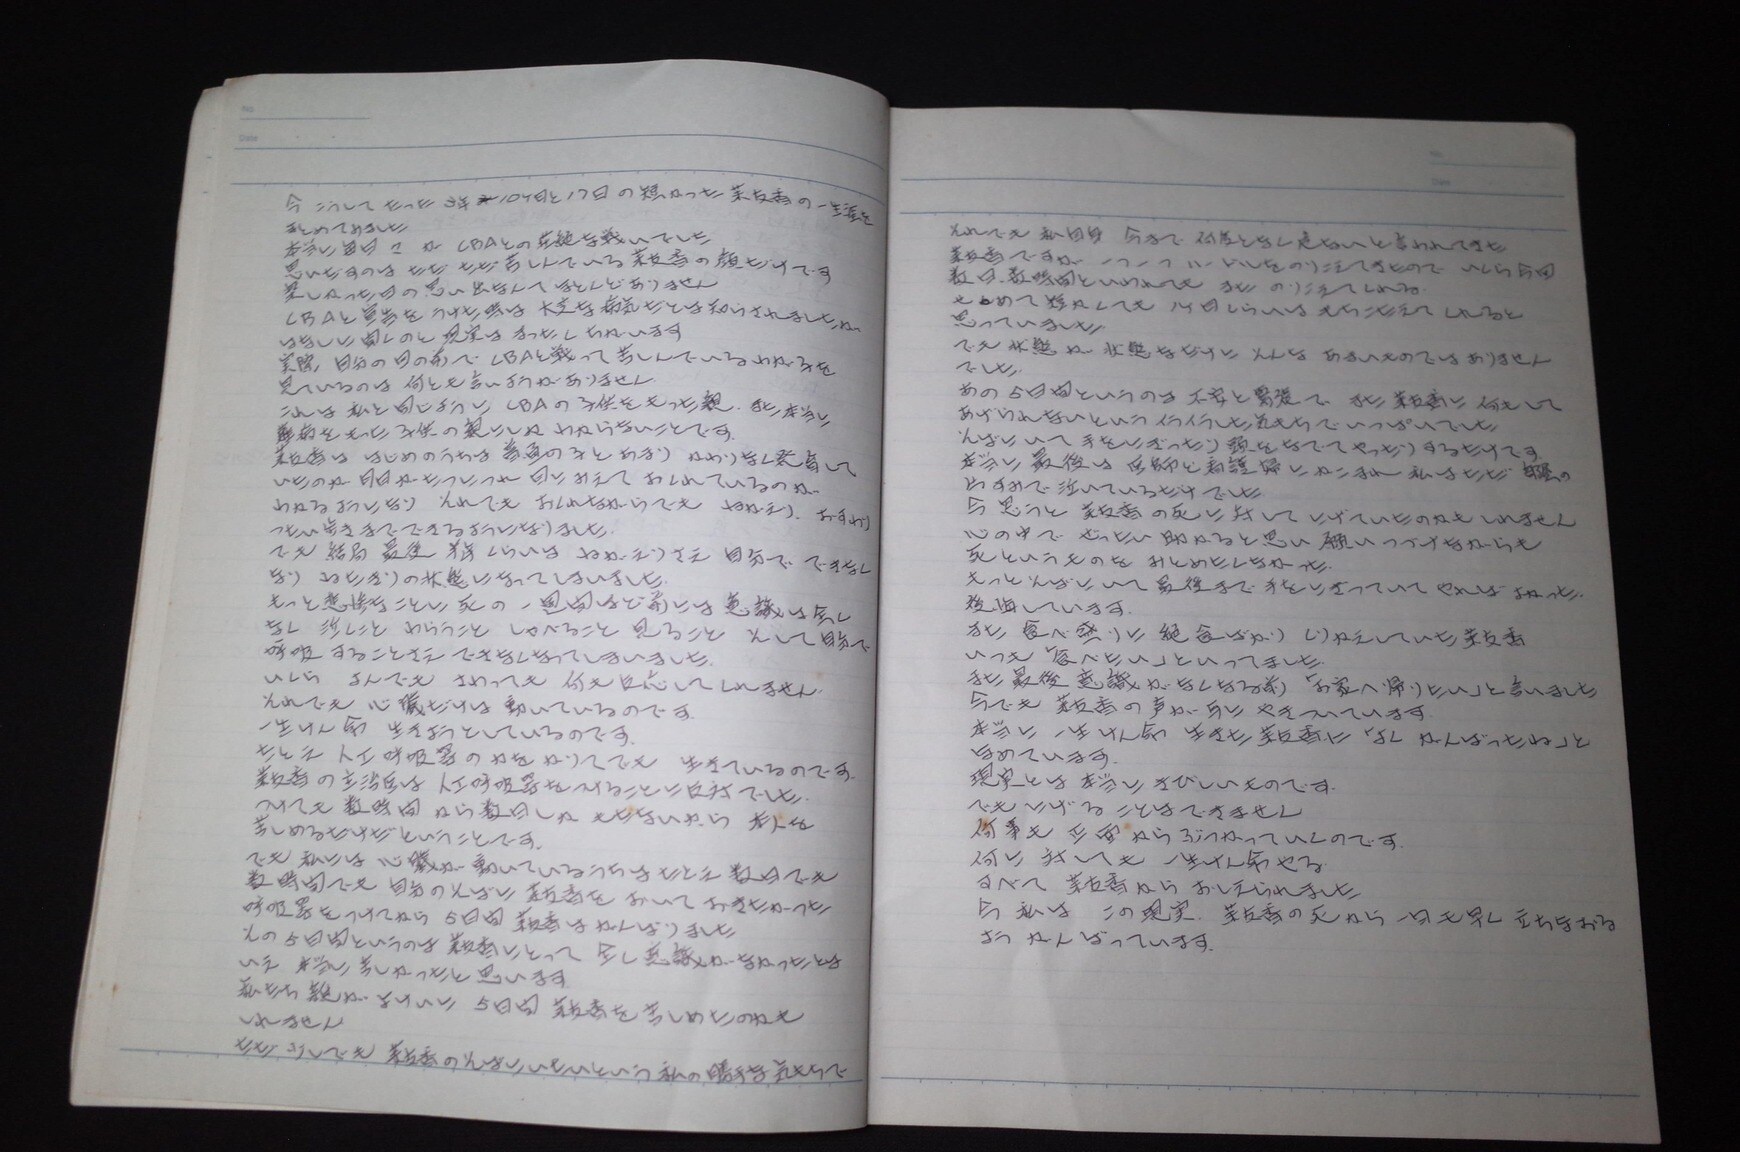 No.
Date
今 こうして たった 3年10ヶ月と17日の短かった 茉友香の一生涯を
まとめてみました
本当に毎日々が CBAとの壮絶な戦いでした
思いだすのは ただ ただ 苦しんでいる 茉友香の顔だけです
楽しかった日の思い出なんて ほとんどありません
CBAと宣告を うけた時は 大変な病気だとは知らされましたが
はなしに聞くのと 現実は まったくちがいます
実際、自分の目の前で CBAと戦って苦しんでいる わが子を
見ているのは 何とも言いようがありません
これは 私と同じように CBAの子供をもった親、また本当に
難病をもった 子供の親にしか わからないことです。
茉友香は はじめのうちは 普通の子とあまり かわりなく発育して
いたのが 月日がたつにつれ 目にみえて おくれているのが
わかるようになり それでも おくれながらでも ねがえり、おすわり
つたい歩きまでできるようになりました。
でも 結局 最後 半年くらいは ねがえりさえ 自分で できなく
なり ねたきりの状態になってしまいました。
もっと悲惨なことに 死の一週間ほど前には 意識は全く
なく 泣くこと わらうこと しゃべること 見ること そして自分で
呼吸することさえ できなくなってしまいました。
いくら よんでも さわっても 何も反応してくれません。
それでも 心臓だけは 動いているのです。
一生けん命 生きようとしているのです。
たとえ 人工呼吸器の力を かりてでも 生きているのです。
茉友香の主治医は 人工呼吸器をつけることに反対でした。
つけても 数時間 から数日しか もたないから 本人を
苦しめるだけだということです。
でも 私には 心臓が 動いているうちは たとえ 数日でも
数時間でも 自分のそばに 茉友香を おいて おきたかった
呼吸器をつけてから 5日間 茉友香は がんばりました
その5日間というのは 茉友香にとって 全く意識がなかったとは
いえ 本当に 苦しかったと思います。
私たち親が よけいに 5日間 茉友香を 苦しめたのかも
しれません
ただ 少しでも 茉友香のそばにいたいという 私の勝手な気もちで
No.
Date
それでも 私自身 今まで 何度となく危ないと言われてきた
茉友香ですが 一つ一つ ハードルをのりこえてきたので いくら今回
数日、数時間といわれても また のりこえてくれる。
せめて 短かくても 1ヶ月くらいは もちこたえて くれると
思っていました。
でも 状態が 状態なだけに そんな あまいものではありません
でした。
あの 5日間というのは 不安と緊張で また 茉友香に 何もして
あげられないという イライラした気もちで いっぱいでした
そばにいて 手をにぎったり 頭をなでてやったり するだけです。
本当に 最後は 医師と看護婦にかこまれ 私はただ 部屋の
片すみで 泣いているだけでした
今 思うと 茉友香の死に対して にげていたのかもしれません
心の中で ぜったい助かると思い 願いつづけながらも
死というものを みとめたくなかった。
もっとそばにいて 最後まで 手をにぎっていて やればよかった。
後悔しています。
また 食べ盛りに 絶食ばかり くりかえしていた 茉友香
いつも「食べたい」といってました。
また 最後 意識がなくなる前「お家へ帰りたい」と言いました
今でも 茉友香の声が 耳に やきついています。
本当に 一生けん命 生きた 茉友香に「よく がんばったね」と
ほめています。
現実とは 本当に きびしいものです。
でも にげる ことはできません
何事も 正面からぶつかっていくのです。
何に 対しても 一生けん命やる。
すべて 茉友香から おしえられました
今 私は この現実、茉友香の死から 一日も早く 立ちなおる
よう がんばっています。